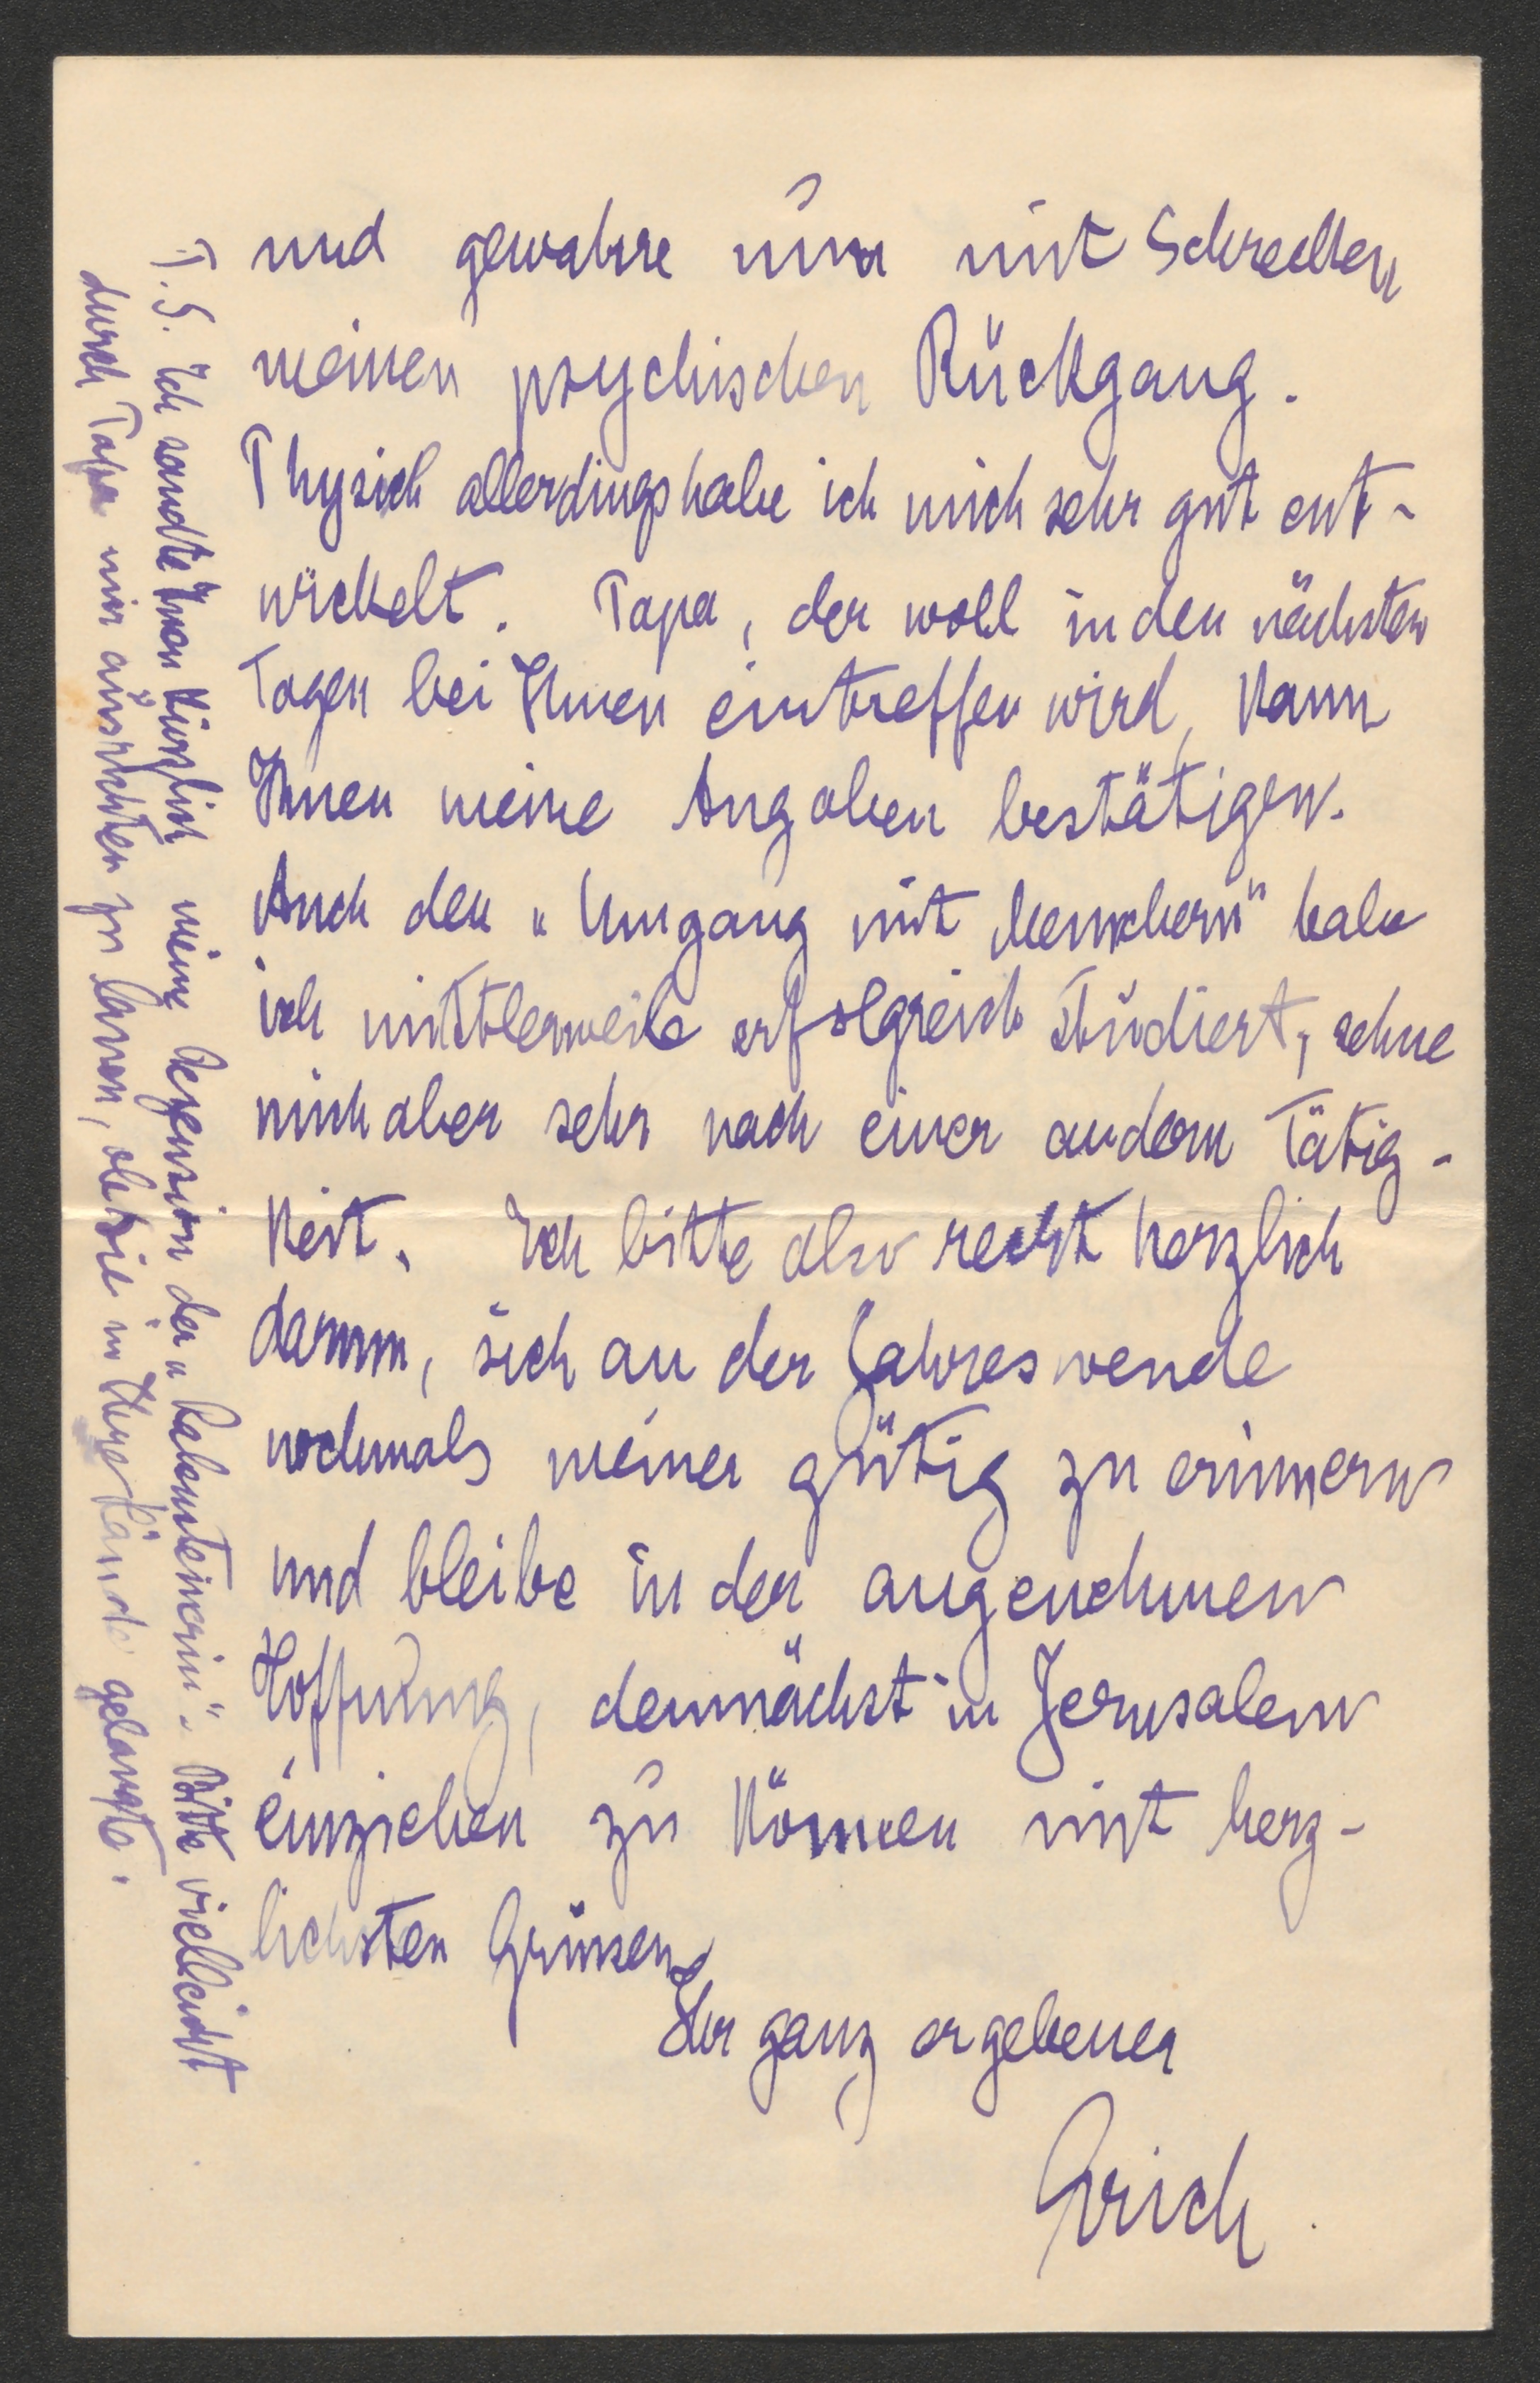 und gewahre nun mit Schrecken
meinen psychischen Rückgang.
Physich allerdings habe ich mich sehr gut ent-
wickelt. Papa, der wohl in den nächsten
Tagen bei Ihnen eintreffen wird, kann
Ihnen meine Angaben bestätigen.
Auch den „Umgang mit Menschen" habe
ich mittlerweile erfolgreich studiert, sehne
mich aber sehr nach einer andern Tätig-
keit. Ich bitte also recht herzlich
darum, sich an der Jahreswende
nochmals meiner gütig zu erinnern
und bleibe in der angenehmen
Hoffnung, demnächst in Jerusalem
einziehen zu können mit herz-
lichsten Grüssen
Ihr ganz ergebener
Erich
P.S. Ich sandte Ihnen kürzlich meine Rezension der „ Bitte vielleicht
durch Papa mir ausrichten zu lassen, ob sie in Ihre Hände gelangte.